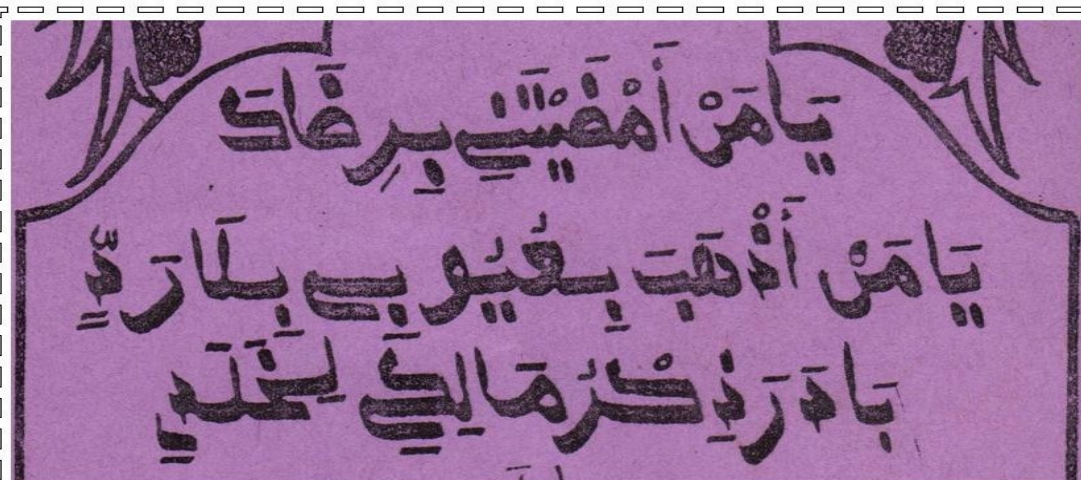 يَا مَنْ أَمْضَيْتَنِي بِرِضَاكَ
يَا مَنْ أَذْهَبَ بِعُيُوبِي بِلَا رَدٍّ
بَادَرَ ذِكْرُ مَالِكِي لِخَلَدٍ